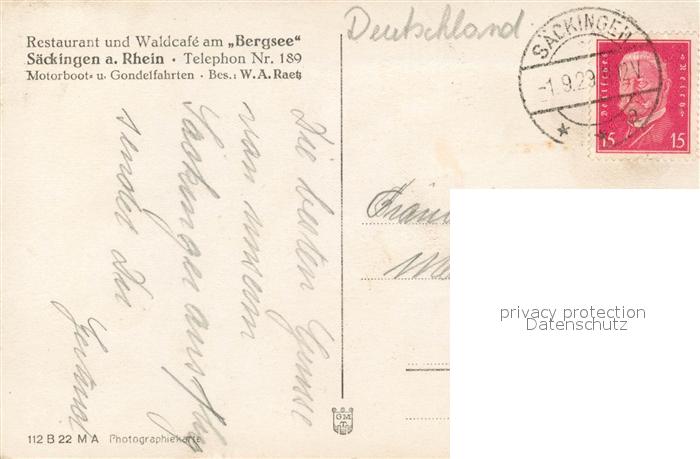 Deutschland
Restaurant und Waldcafé am „Bergsee"
Säckingen a. Rhein · Telephon Nr. 189
Motorboot- u. Gondelfahrten · Bes.: W. A. Raetz
SÄCKINGEN
-1.9.29 12V
a
Deutsches Reich
15 15
Die besten Grüsse
von unserm
Säckinger ausflug
sendet Dir
Gertrud
Fräul
privacy protection
Datenschutz
GM
T
112 B 22 M A Photographiekarte